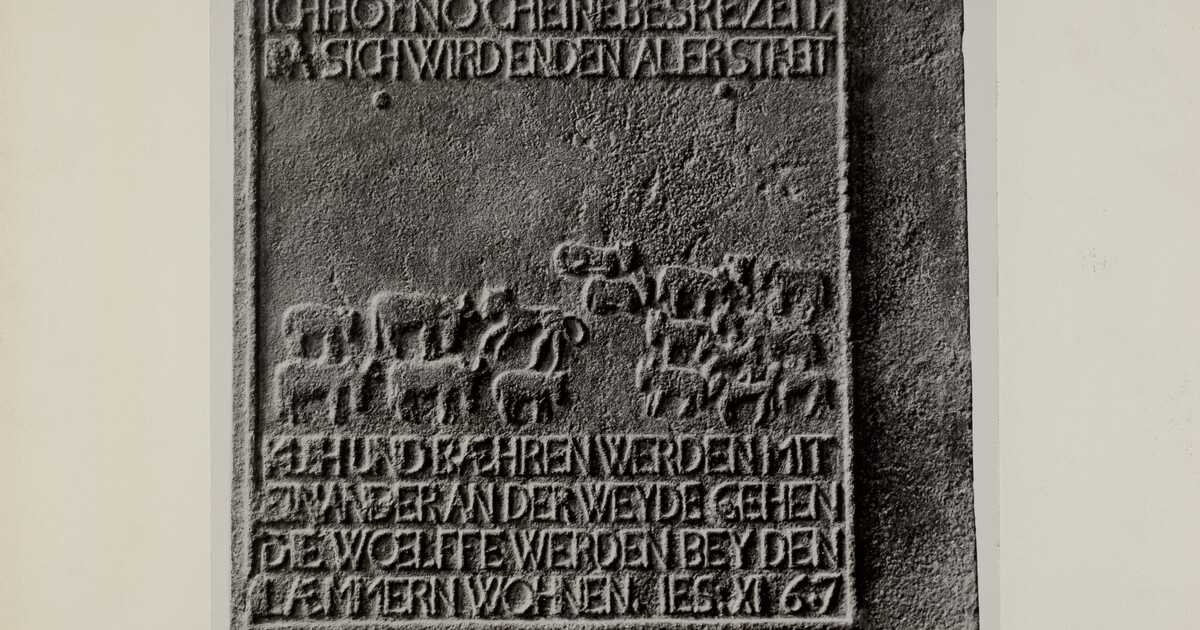 ICH HOF NOCH EINE BESRE ZEIT,
DA SICH WIRD ENDEN ALER STREIT
KÜEH UND BÆHREN WERDEN MIT
EINANDER AN DER WEYDE GEHEN
DIE WOELFFE WERDEN BEY DEN
LÆMMERN WOHNEN. IES: XI 6·7